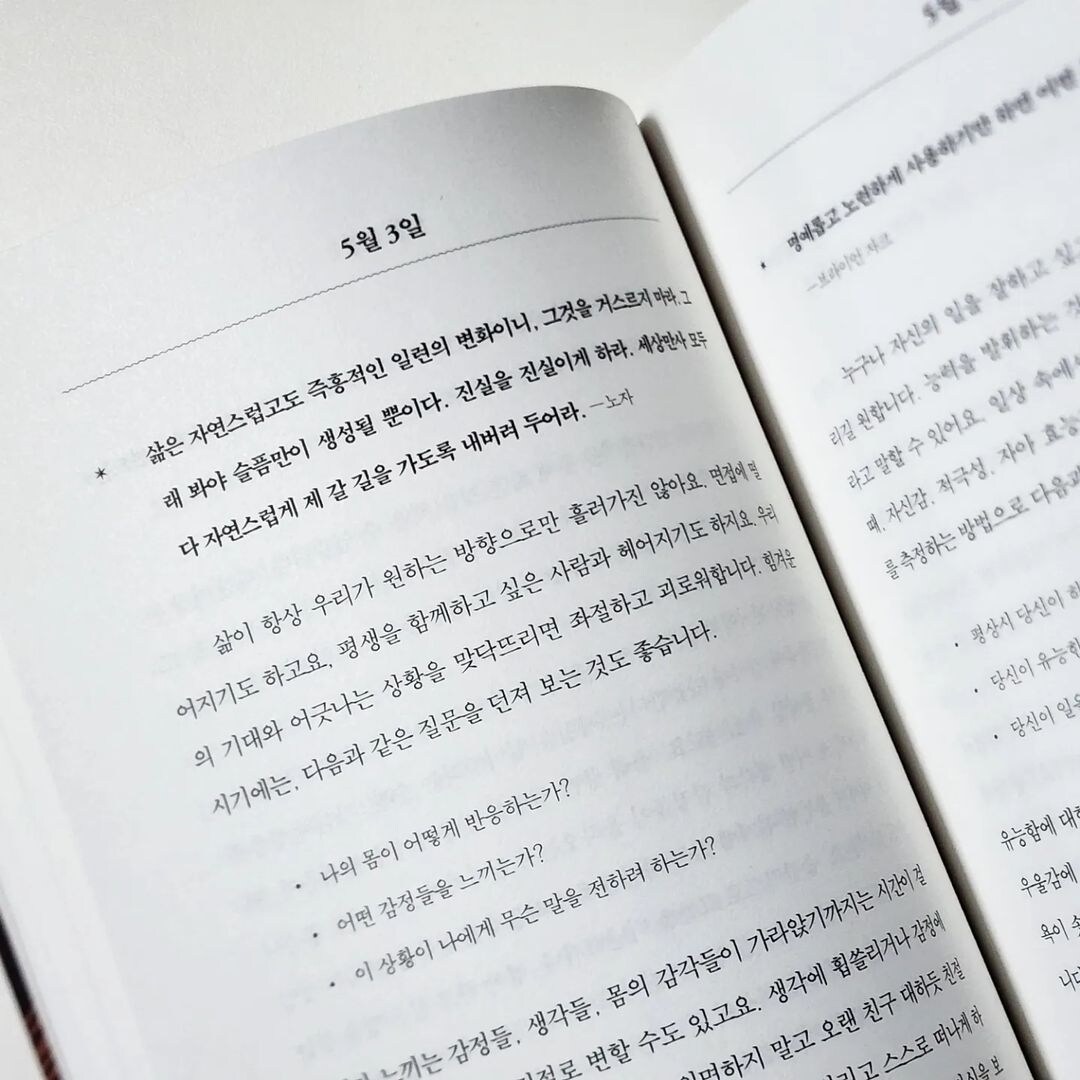 5월 3일
* 삶은 자연스럽고도 즉흥적인 일련의 변화이니, 그것을 거스르지 마라. 그
래 봐야 슬픔만이 생성될 뿐이다. 진실을 진실이게 하라. 세상만사 모두
다 자연스럽게 제 갈 길을 가도록 내버려 두어라. —노자
삶이 항상 우리가 원하는 방향으로만 흘러가진 않아요. 면접에 떨
어지기도 하고요, 평생을 함께하고 싶은 사람과 헤어지기도 하지요. 우리
의 기대와 어긋나는 상황을 맞닥뜨리면 좌절하고 괴로워합니다. 힘겨운
시기에는, 다음과 같은 질문을 던져 보는 것도 좋습니다.
• 나의 몸이 어떻게 반응하는가?
• 어떤 감정들을 느끼는가?
• 이 상황이 나에게 무슨 말을 전하려 하는가?
느끼는 감정들, 생각들, 몸의 감각들이 가라앉기까지는 시간이 걸
변할 수도 있고요. 생각에 휩쓸리거나 감정에
말고 오랜 친구 대하듯 친절
스스로 떠나게 하
5월
* 명예롭고 노련하게 사용하기만 하면 어떤
—브라이언 자크
누구나 자신의 일을 잘하고 싶
리길 원합니다. 능력을 발휘하는 것
라고 말할 수 있어요. 일상 속에서
때, 자신감, 적극성, 자아 효능
를 측정하는 방법으로 다음과
• 평상시 당신이 하
• 당신이 유능한
• 당신이 일을
유능함에 대한
우울감에
욕이 솟
니다